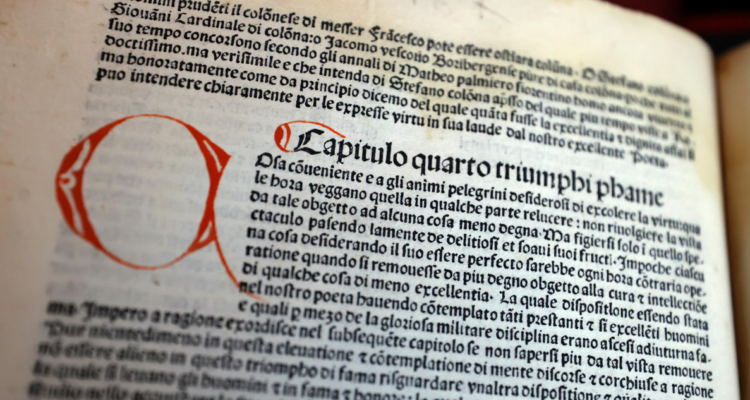 homini prudēti il colōnese di messer Frācesco potè essere ostiara colūna. O Stefano colōna
Giouāni Cardinale di colōna: o Jacomo vescouo Bozibergense pure di casa colōna: po che
suo tempo concorsono secondo gli annali di Matheo palmiero fiorentino homo ancora
doctissimo. ma verisimile e che intenda di Stefano colōna apsso del quale piu tempo visse
ma honoratamente come da principio dicemo del quale quāta fusse la excellentia τ dignita
puo intendere chiaramente per le expresse virtu in sua laude dal nostro excellente Poeta.
Capitulo quarto triumphi phame
QOsa cōueniente e a gli animi pelegrini desiderosi di excolere la virtu: que
le hora veggano quella in qualche parte relucere: non riuolgiere la vista
da tale obgetto ad alcuna cosa meno degna. Ma figiersi solo i quello spe-
ctaculo pasendo lamente de delitiosi et soaui suoi fructi. Impoche ciascu
na cosa desiderando il suo essere perfecto sarebbe ogni hora cōtraria ope-
ratione quando si remouesse da piu degno obgetto alla cura τ intellectiōe
di qualche cosa di meno excellentia. La quale dispositione essendo stata
nel nostro poeta hauendo cōtemplato tāti prestanti τ si excellēti huomini
e quali p mezo de la gloriosa militare disciplina erano ascesi adiuturna fa-
ma. Impero a ragione exordisce nel subsequēte capitolo se non sapersi piu da tal vista remouere
Pur nientedimeno in questa eleuatione τ cōtemplatione di mente discorse τ corchiuse a ragione
nō essere alieno in questo triompho di fama risguardare vnaltra dispositione τ qualita
la quale si leuano gli huomini τ in fama τ
studio nello